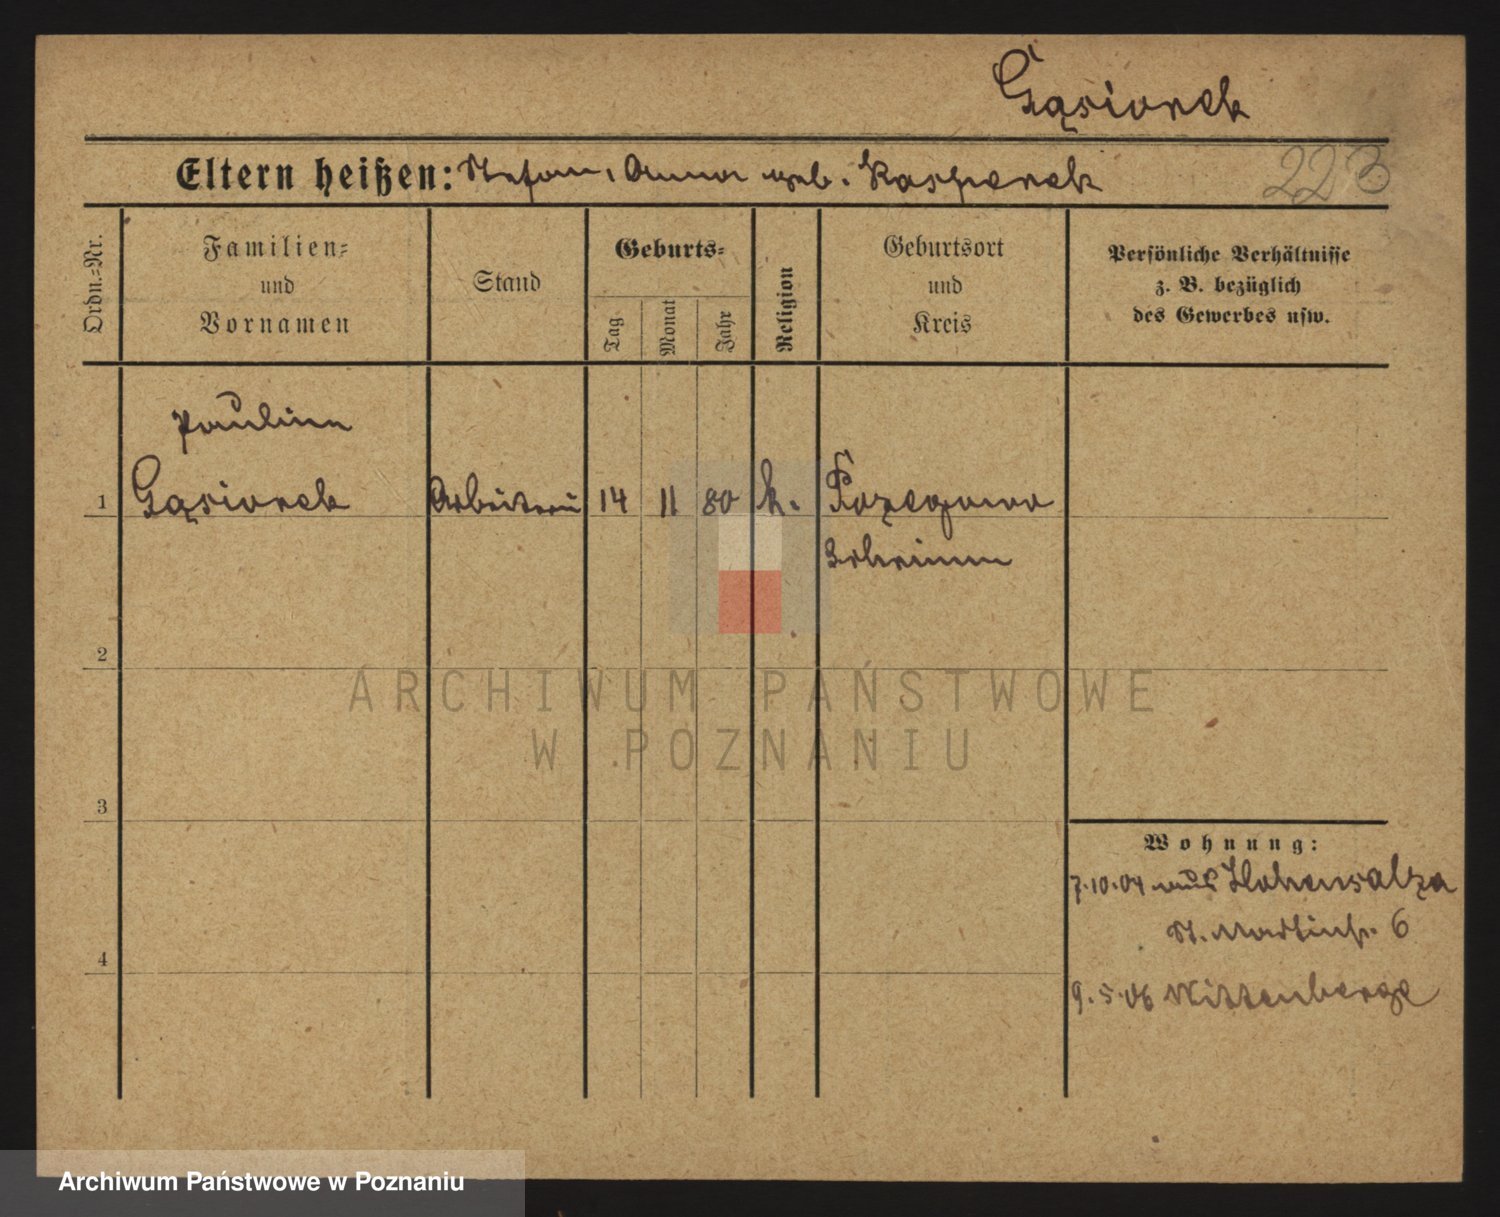 Gąsiorek
Eltern heißen: Stefan, Anna geb. Kasperek
223
Ordn.-Nr.
Familien-
und
Vornamen
Stand
Geburts-
Tag
Monat
Jahr
Religion
Geburtsort
und
Kreis
Persönliche Verhältnisse
z. B. bezüglich
des Gewerbes usw.
Paulina
1 Gąsiorek Arbeiterin 14 11 80 k.
Schrimm
2
ARCHIWUM PAŃSTWOWE
W POZNANIU
3
Wohnung:
7.10.04 aus Hohensalza
St. Martinstr. 6
4
9.5.06 Wittenberge
Archiwum Państwowe w Poznaniu